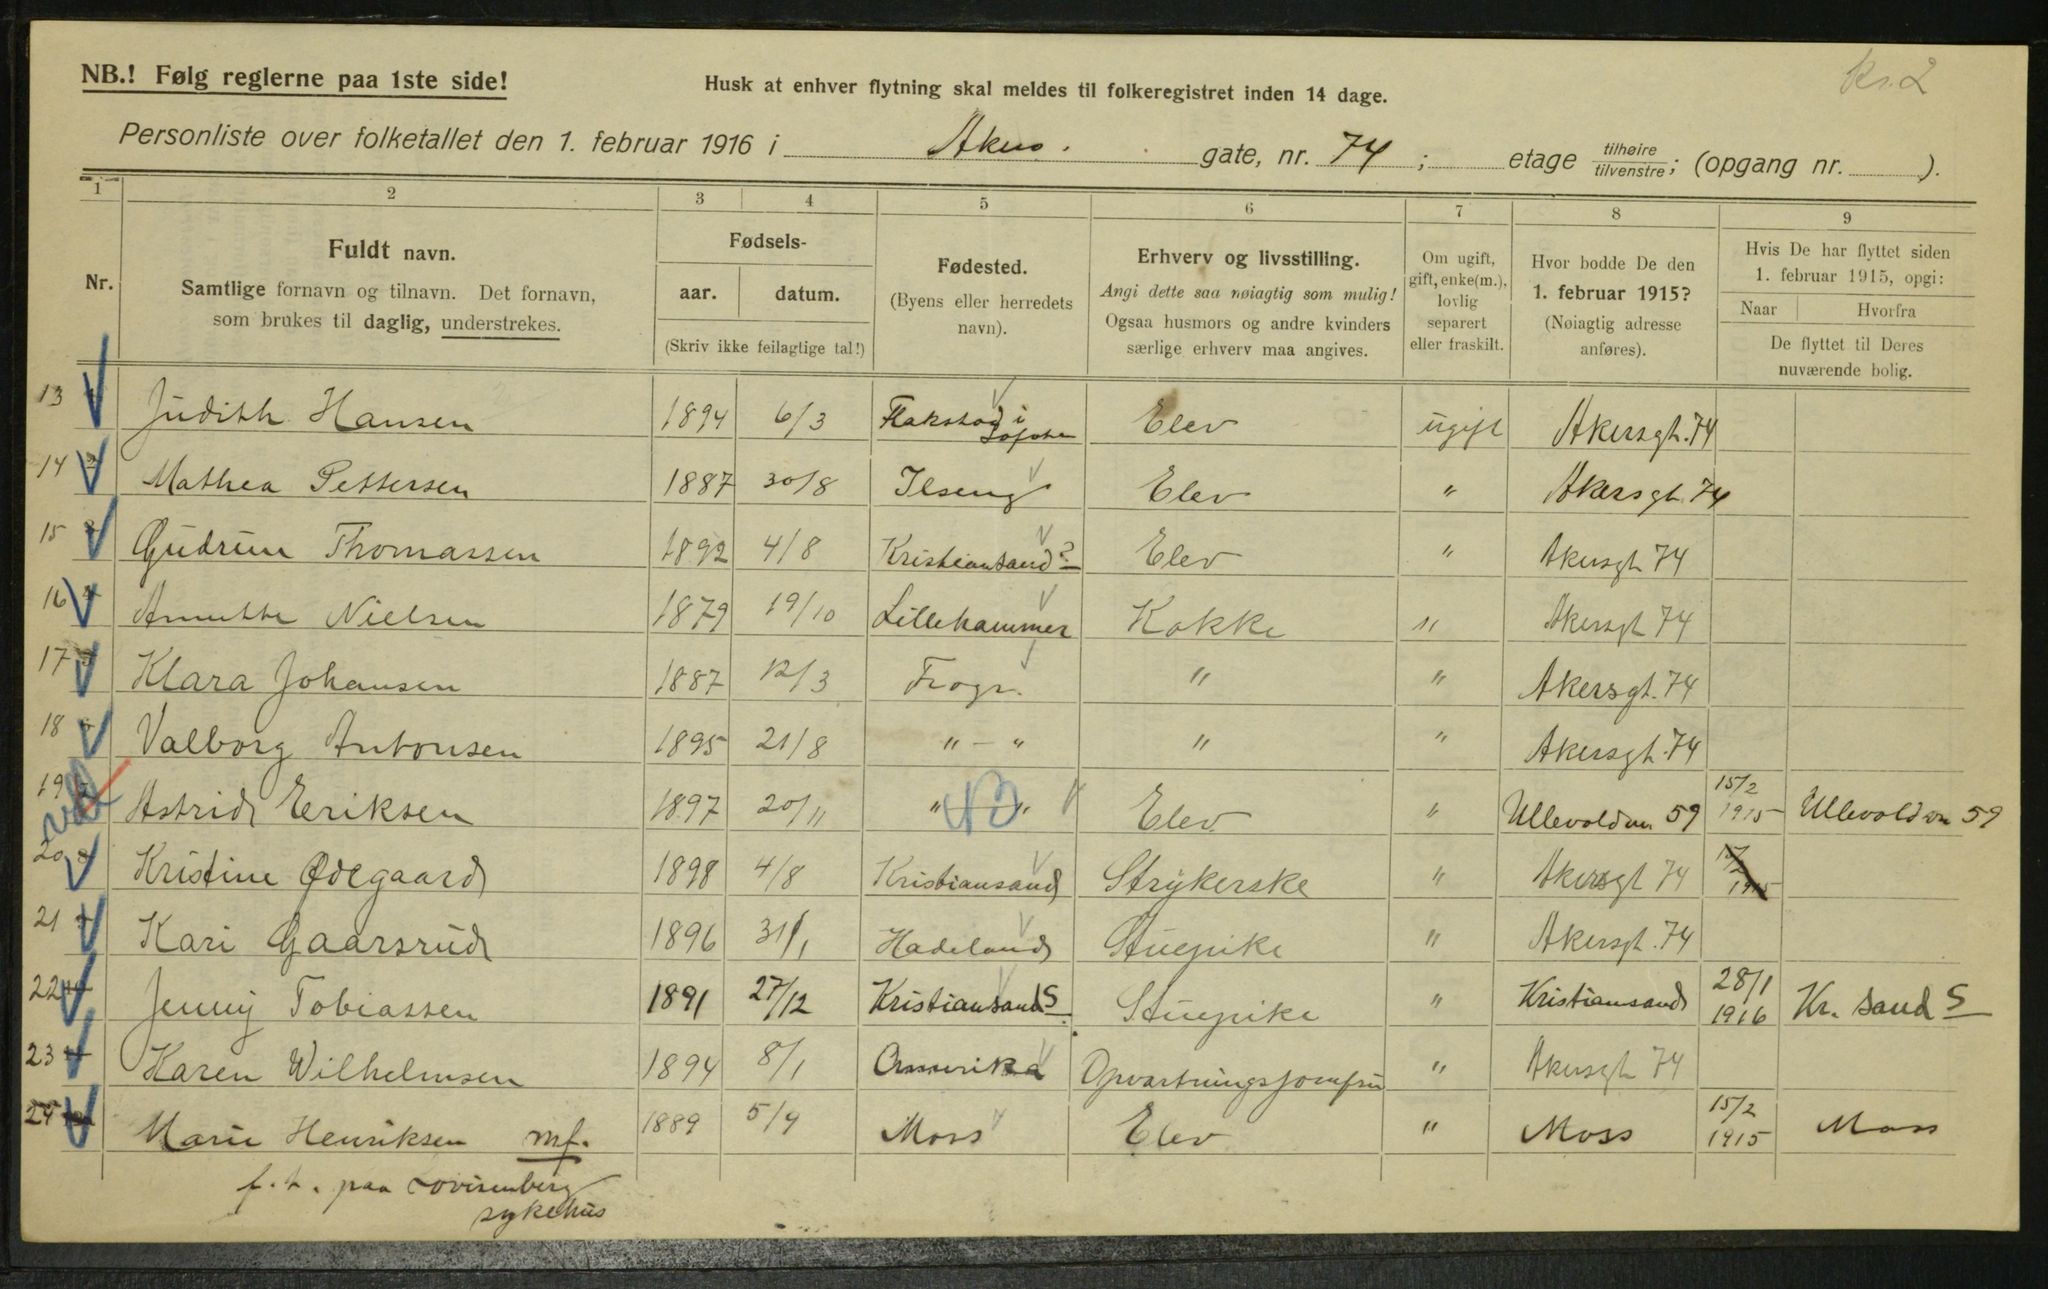 kr. 2
NB.! Følg reglerne paa 1ste side!
Husk at enhver flytning skal meldes til folkeregistret inden 14 dage.
Personliste over folketallet den 1. februar 1916 i Akers. gate, nr. 74 ; etage tilhøire tilvenstre ; (opgang nr. ).
1 2 3 4 5 6 7 8 9
Nr.
Fuldt navn.
Samtlige fornavn og tilnavn. Det fornavn,
som brukes til daglig, understrekes.
Fødsels-
aar. datum.
(Skriv ikke feilagtige tal!)
Fødested.
(Byens eller herredets
navn).
Erhverv og livsstilling.
Angi dette saa nøiagtig som mulig!
Ogsaa husmors og andre kvinders
særlige erhverv maa angives.
Om ugift,
gift, enke(m.),
lovlig
separert
eller fraskilt.
Hvor bodde De den
1. februar 1915?
(Nøiagtig adresse
anføres).
Hvis De har flyttet siden
1. februar 1915, opgi:
Naar Hvorfra
De flyttet til Deres
nuværende bolig.
13 Judith Hansen 1894 6/3 Flakstad i Lofoten Elev ugift Akersgt. 74
14 Mathea Pettersen 1887 30/8 Ilseng Elev " Akersgt. 74
15 Gudrun Thomassen 1892 4/8 Kristiansand ? Elev " Akersgt 74
16 Annette Nielsen 1879 19/10 Lillehammer Kokke " Akersgt 74
17 Klara Johansen 1887 12/3 Frogn. " " Akersgt. 74
18 Valborg Antonsen 1895 21/8 " - " " " Akersgt. 74
19 Astrid Eriksen 1897 20/11 " " Elev " Ullevoldsvn. 59 15/2 1915 Ullevoldsvn 59
20 Kristine Ødegaard 1898 4/8 Kristiansand Strykerske " Akersgt 74 15/2 1915
21 Kari Gaarsrud 1896 31/1 Hadeland Stuepike " Akersgt. 74
22 Jenny Tobiassen 1891 27/12 Kristiansand S. Stuepike " Kristiansand 28/1 1916 Kr. sand S
23 Karen Wilhelmsen 1894 8/1 Amerika Opvartningsjomfru " Akersgt 74
24 Marie Henriksen mf. 1889 5/9 Moss Elev " Moss 15/2 1915 Moss
f. t. paa Lovisenberg
sykehus